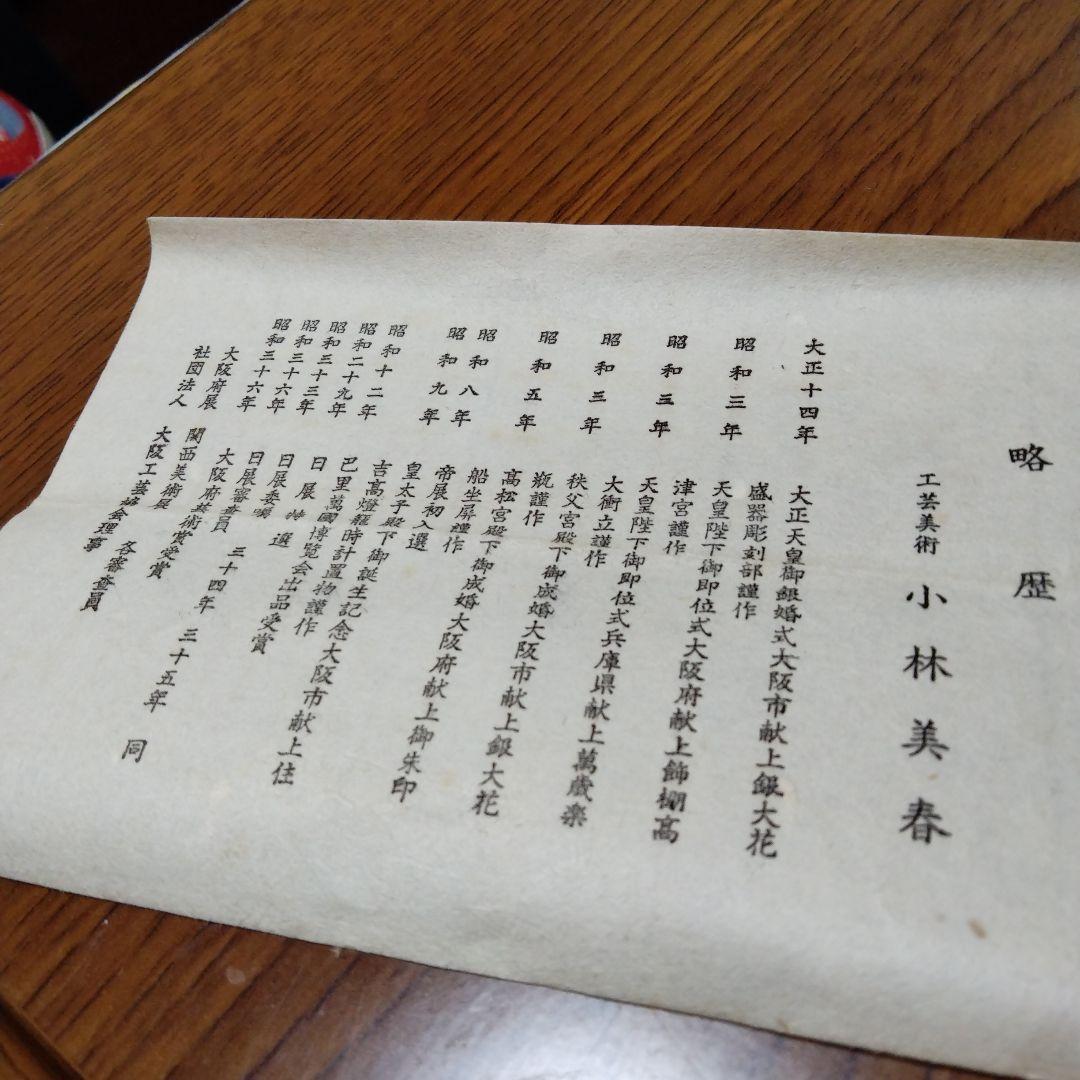 略歴
工芸美術 小林美春
大正十四年 大正天皇御銀婚式大阪市献上銀大花
盛器彫刻部謹作
昭和三年 天皇陛下御即位式大阪府献上飾棚高
津宮謹作
昭和三年 天皇陛下御即位式兵庫県献上萬歳楽
大衝立謹作
昭和三年 秩父宮殿下御成婚大阪市献上銀大花
瓶謹作
昭和五年 高松宮殿下御成婚大阪府献上御朱印
船坐屏謹作
昭和八年 帝展初入選
昭和九年 皇太子殿下御誕生記念大阪市献上住
吉高燈籠時計置物謹作
昭和十二年 巴里萬國博覧会出品受賞
昭和二十九年 日展特選
昭和三十三年 日展委嘱
昭和三十六年 日展審査員
昭和三十六年 大阪府芸術賞受賞
大阪府展 三十四年 三十五年 同
関西美術展
社団法人 大阪工芸協会理事 各審査員